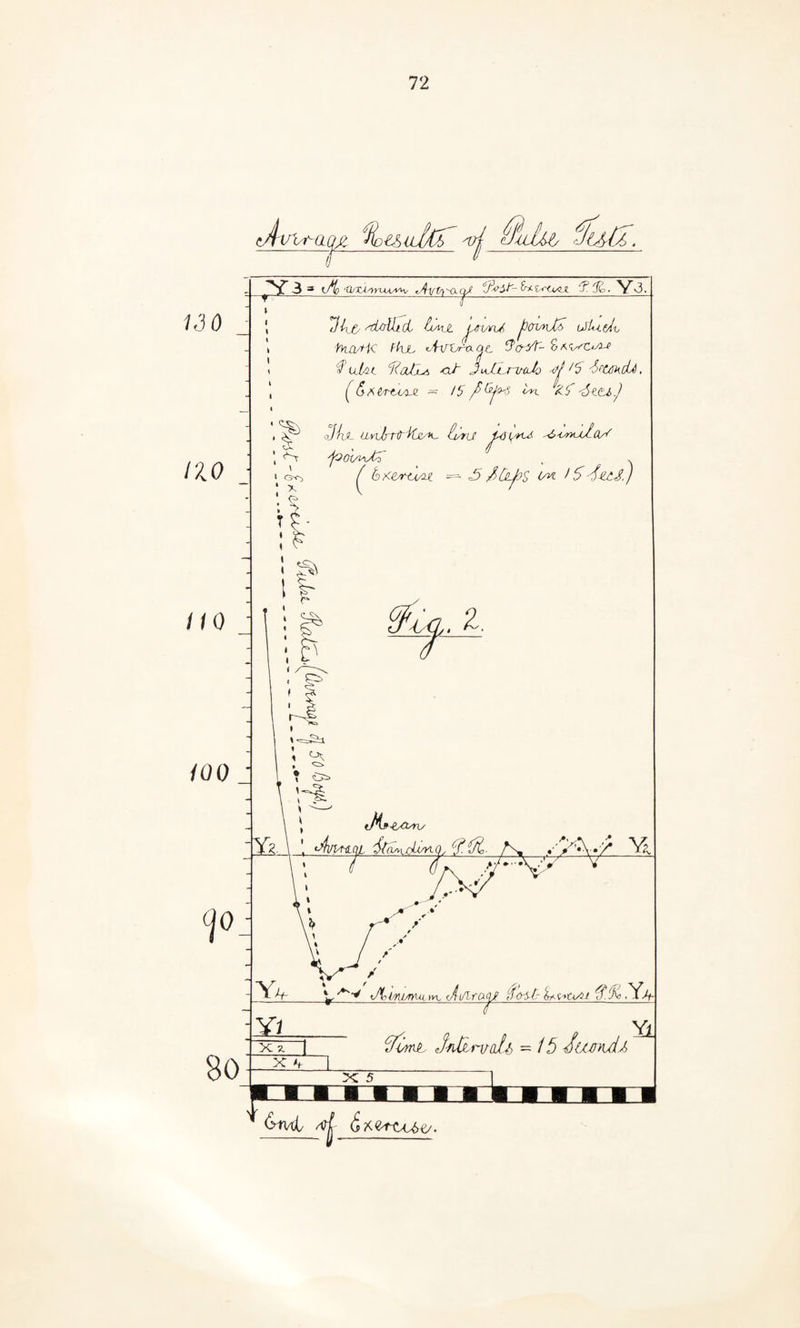 72
Average Results of Pulse Tests.
Y3 = A maximum Average Post-Exercise P.R. Y3.
130
The dotted line joins points which
mark the Average Post-Exercise
Pulse Rates at Intervals of 15 seconds.
(Exercise = 15 steps in 25 secs.)
The unbroken line joins similar
points
(Exercise = 5 steps in 15 secs.)
120
Post-Exercise Pulse Rates. (Average of 50 boys.)
110
Fig. 2.
100
Mean
Y2. Average Standing P.R. Y2
90
Y4 Minimum Average Post-Exercise P.R. Y4
Y1 Y1
X2 Time Intervals = 15 Seconds
80
X4
X5
End of Exercise.